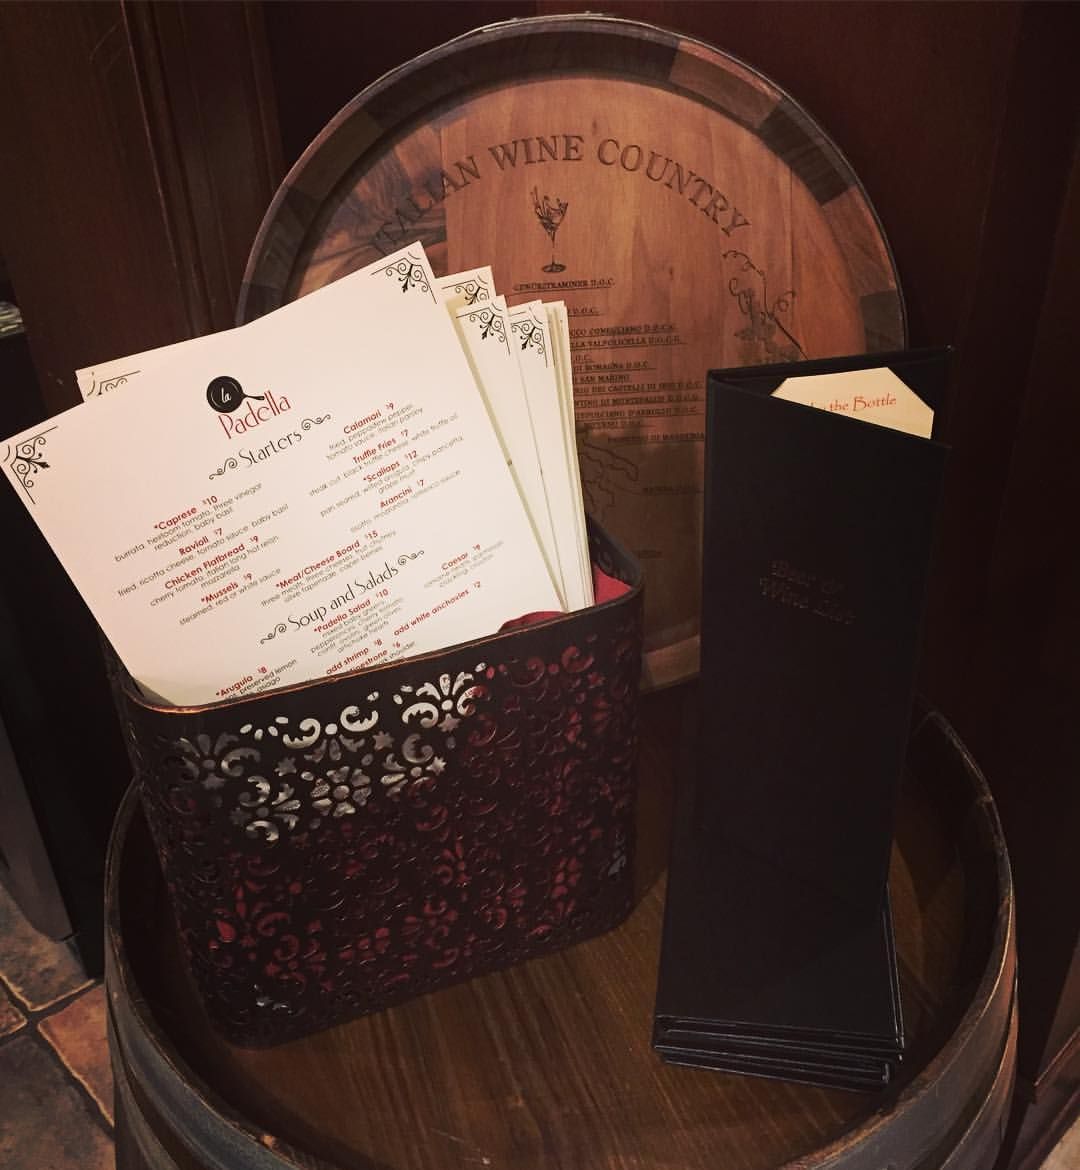 ITALIAN WINE COUNTRY
GEWÜRZTRAMINER D.O.C.
D.O.C.
CONEGLIANO D.O.C.
VALPOLICELLA D.O.C.
D.O.C.
DI ROMAGNA D.O.C.
DI SAN MARINO
DEI CASTELLI DI JESI D.O.C.
DI MONTEFALCO D.O.C.
D'ABRUZZO D.O.C.
D.O.C.
la
Padella
Starters
*Caprese $10
burrata, heirloom tomato, three vinegar
reduction, baby basil
Ravioli $7
fried, ricotta cheese, tomato sauce, baby basil
Chicken Flatbread $9
cherry tomato, italian long hot relish,
mozzarella
*Mussels $9
steamed, red or white sauce
Calamari $9
fried, pepperdew pepper,
tomato sauce, italian parsley
Truffle Fries $7
steak cut, black truffle cheese, white truffle oil
*Scallops $12
pan seared, wilted arugula, crispy pancetta,
grape must
Arancini $7
risotto, mozzarella, sauce
*Meat/Cheese Board $15
three meats, three cheeses, fruit chutney,
olive tapenade, caper berries
Soup and Salads
*Padella Salad $10
mixed baby greens,
pepperoncini, cherry tomato,
green olives,
artichoke hearts
Caesar $8
romaine hearts, parmesan
add white anchovies $2
*Arugula $8
preserved lemon
asiago
add shrimp $8
$6
shoulder
by the Bottle
Beer &
Wine List